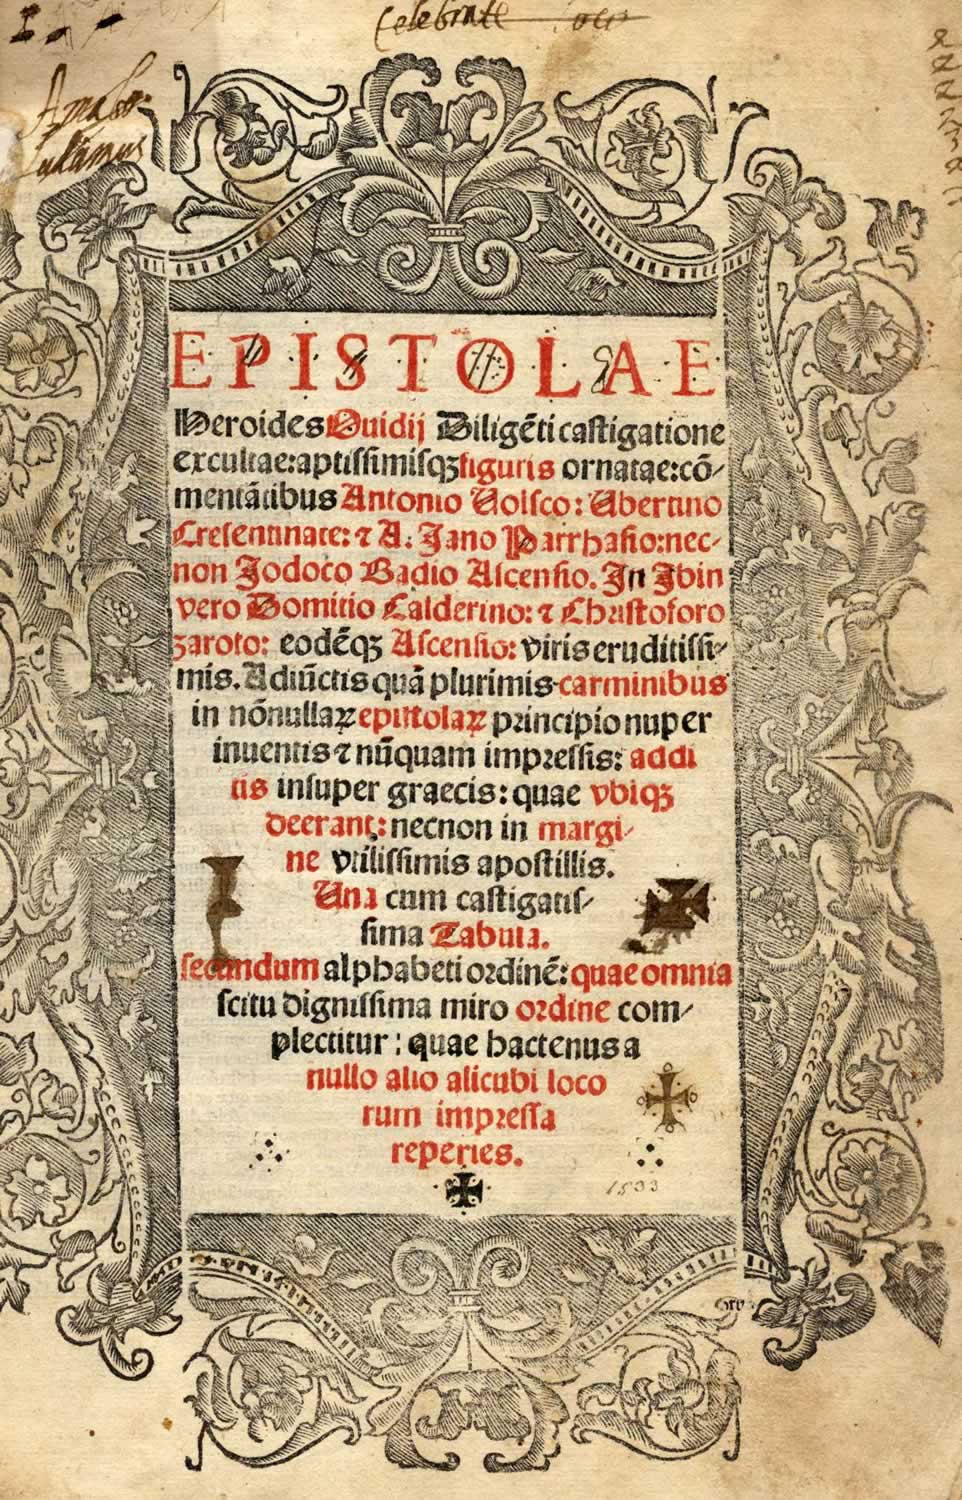 Celebrate loco
EPISTOLAE
Heroides Ouidij Diligẽti castigatione
excultae: aptissimisqꝫ figuris ornatae: cõ-
mentãtibus Antonio Volsco: Vbertino
Cresentinate: ⁊ A. Jano Parrhasio: nec-
non Jodoco Badio Ascensio. In Ibin
vero Domitio Calderino: ⁊ Christoforo
zaroto: eodẽqꝫ Ascensio: viris eruditissi-
mis. Adiũctis quã plurimis carminibus
in nõnullaꝝ epistolaꝝ principio nuper
inuentis ⁊ nũquam impressis: addi
tis insuper graecis: quae vbiqꝫ
deerant: necnon in margi-
ne vtilissimis apostillis.
Una cum castigatis-
sima Tabula.
secundum alphabeti ordinẽ: quae omnia
scitu dignissima miro ordine com-
plectitur: quae hactenus a
nullo alio alicubi loco
rum impressa
reperies.
1533